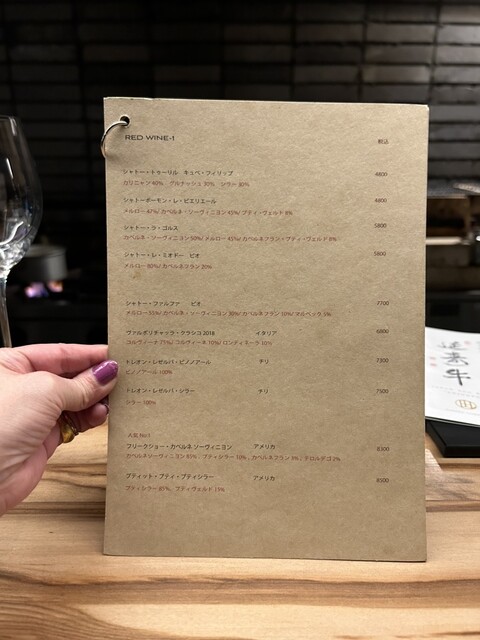 RED WINE-1 税込
シャトー・トゥーリル キュベ・フィリップ 4800
カリニャン 40% グルナッシュ 30% シラー 30%
シャトーボーモン・レ・ピエリエール 4800
メルロー 47%/ カベルネ・ソーヴィニヨン 45%/ プティ・ヴェルド 8%
シャトー・ラ・ゴルス 5800
カベルネ・ソーヴィニヨン 50%/ メルロー 45%/ カベルネフラン・プティ・ヴェルド 5%
シャトー・レ・ミオドー ビオ 5800
メルロー 80%/ カベルネフラン 20%
シャトー・ファルファ ビオ 7700
メルロー 55%/ カベルネ・ソーヴィニヨン 30%/ カベルネフラン 10%/ マルベック 5%
ヴァルポリチャッラ・クラシコ 2018 イタリア 6800
コルヴィーナ 75%/ コルヴィーネ 15%/ ロンディネーラ 10%
トレオン・レゼルバ・ピノノアール チリ 7300
ピノノアール 100%
トレオン・レゼルバ・シラー チリ 7500
シラー 100%
人気 No.1
フリークショー・カベルネ ソーヴィニヨン アメリカ 8300
カベルネソーヴィニヨン 85% , プティシラー 10% , カベルネフラン 3% , テロルデゴ 2%
プティット・プティ・プティシラー アメリカ 8500
プティシラー 85%、プティヴェルド 15%
牛